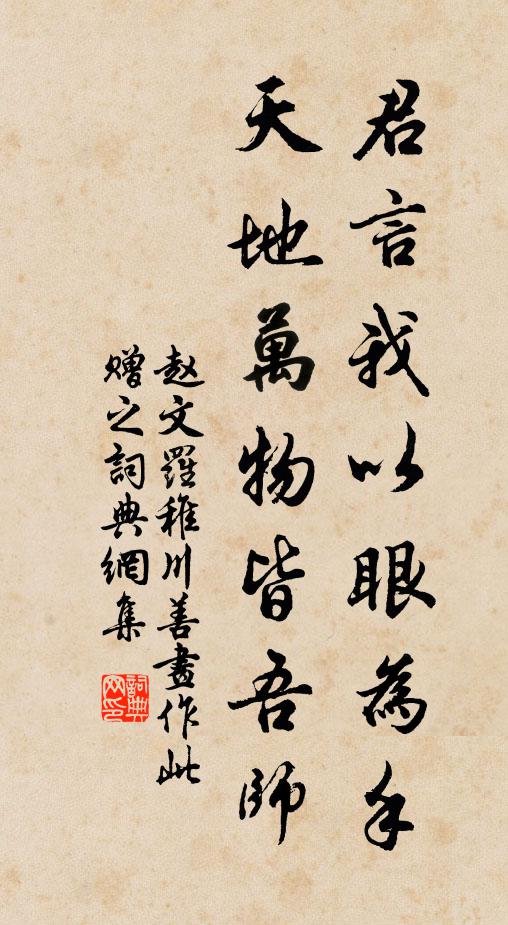 君言我以眼為手
天地萬物皆吾師
赵文羅稚川善畫作此
贈之詞典網集
詞典
网印